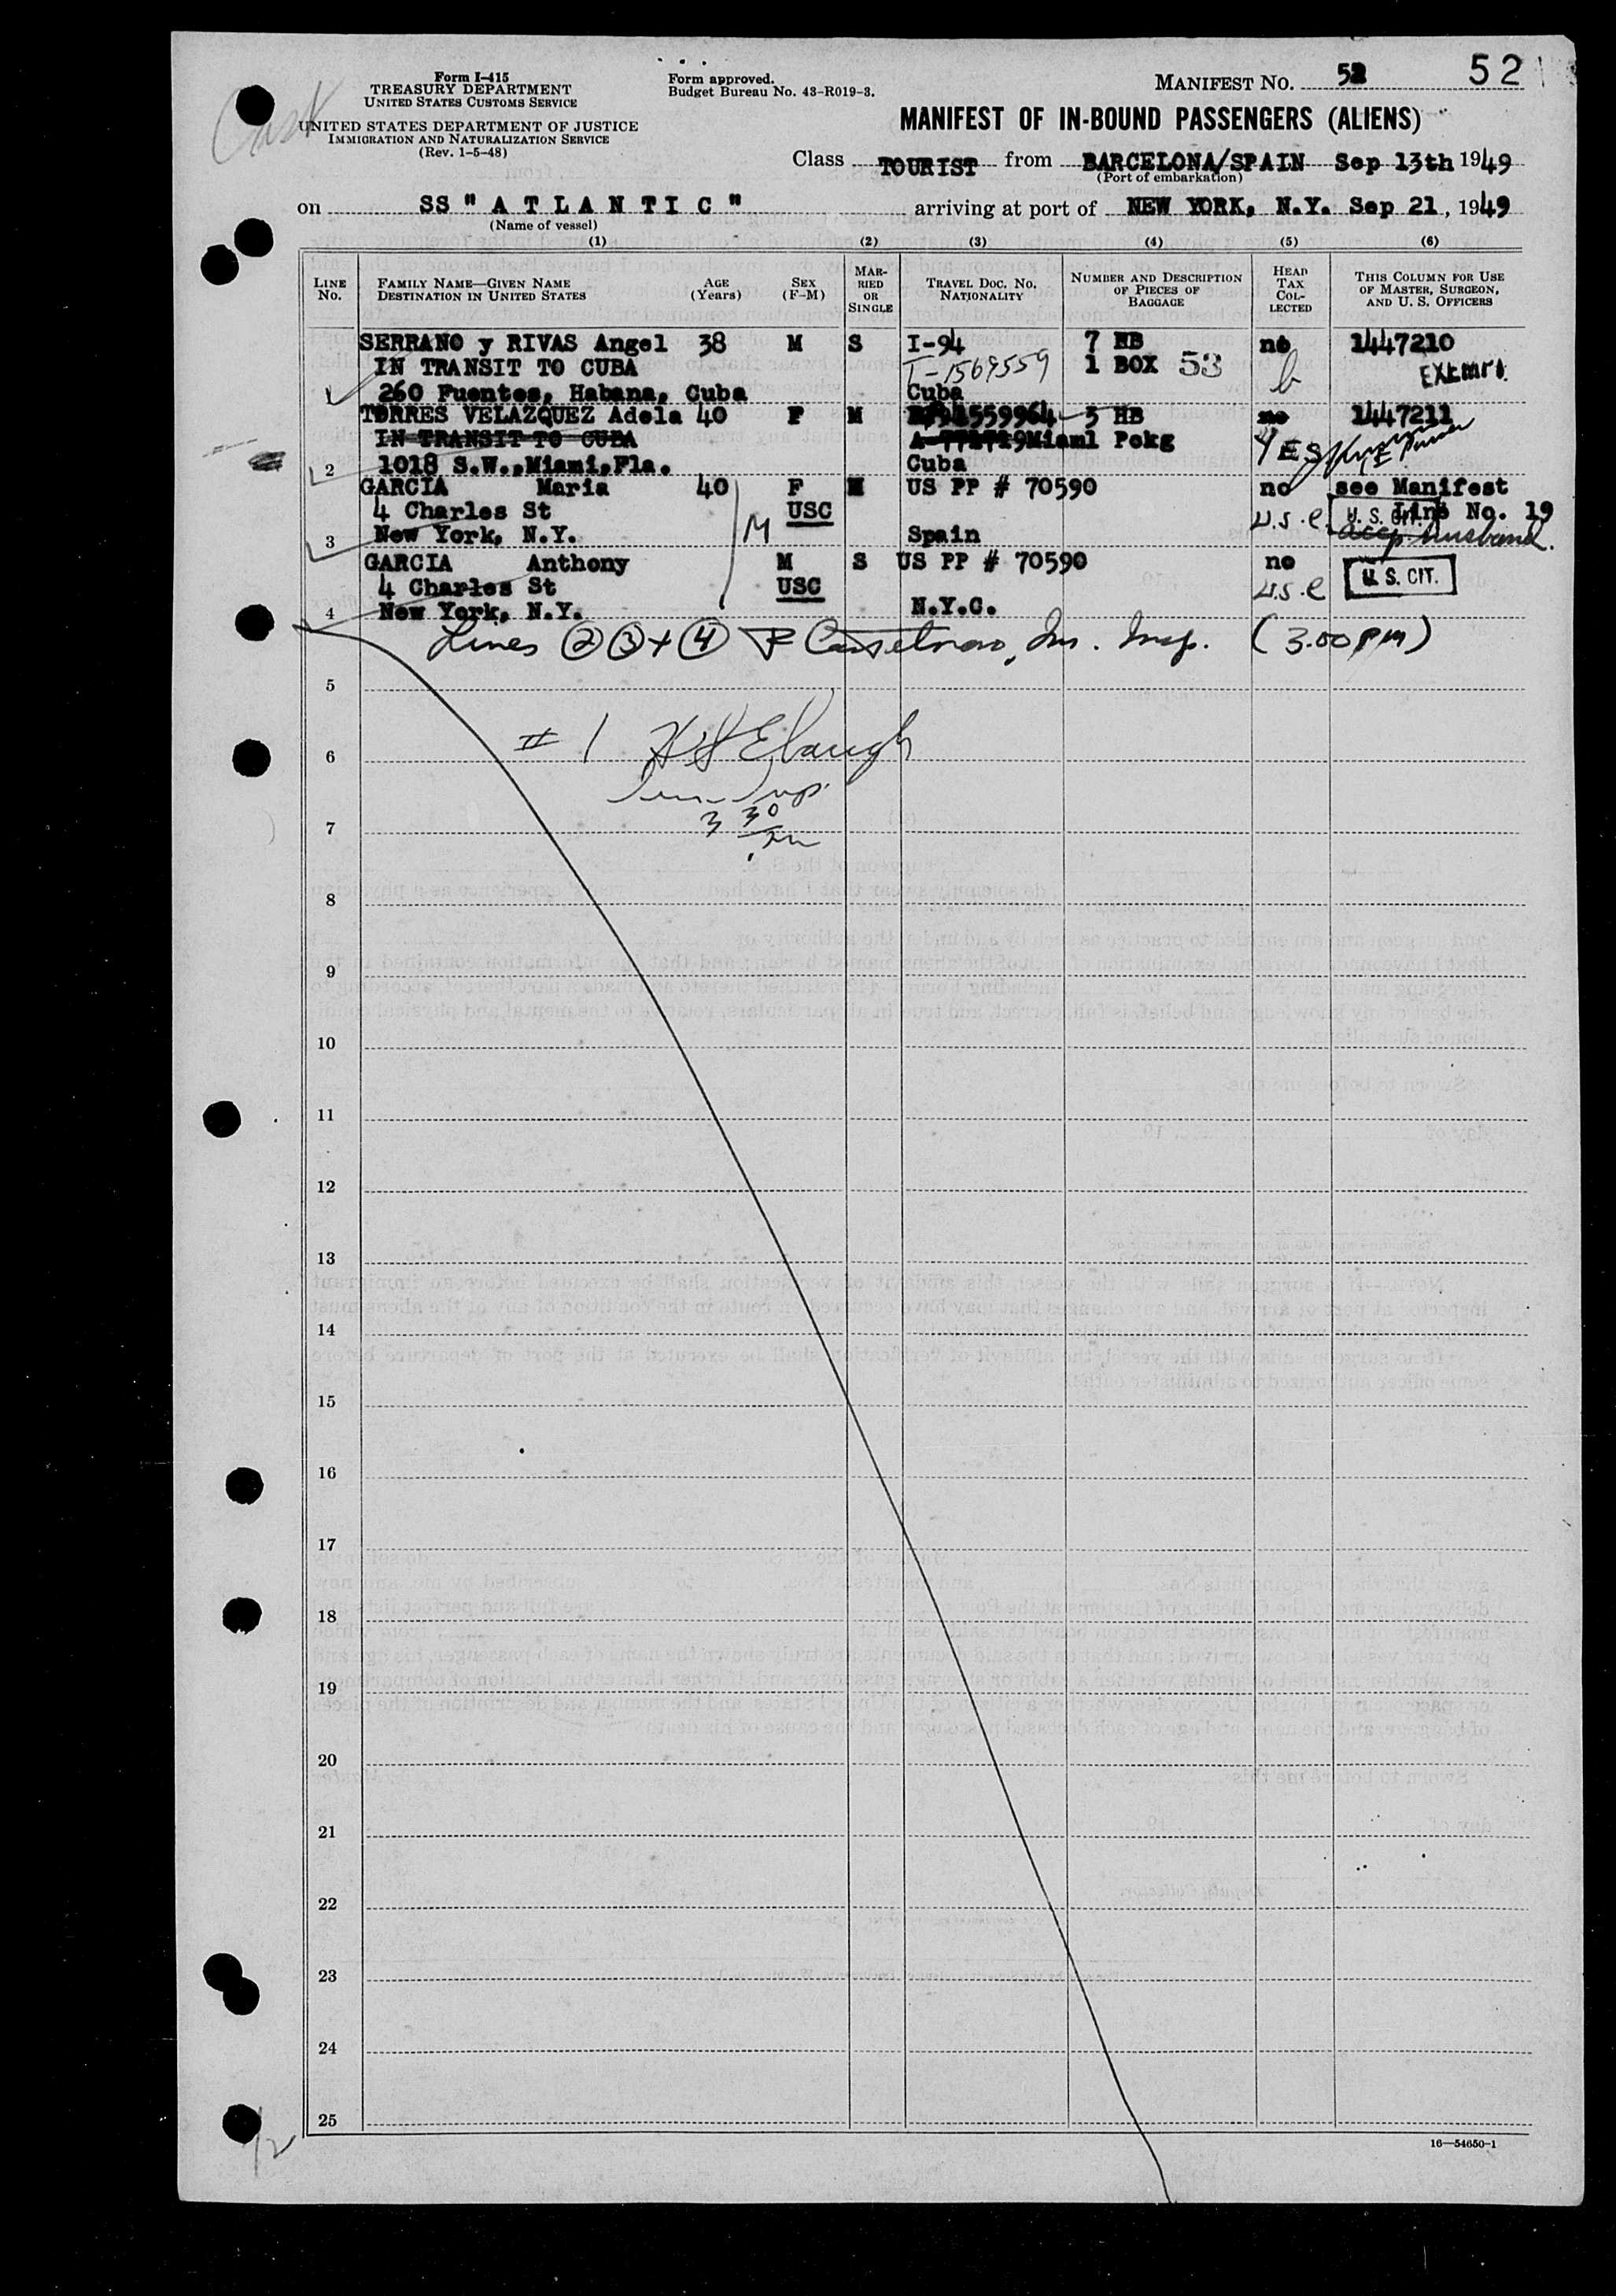 Form I-415
TREASURY DEPARTMENT
UNITED STATES CUSTOMS SERVICE
UNITED STATES DEPARTMENT OF JUSTICE
IMMIGRATION AND NATURALIZATION SERVICE
(Rev. 1-5-48)
Form approved.
Budget Bureau No. 43-R019-3.
MANIFEST NO. 52 52
MANIFEST OF IN-BOUND PASSENGERS (ALIENS)
Class TOURIST from BARCELONA/SPAIN Sep 13th 1949
(Port of embarkation)
on SS "ATLANTIC" arriving at port of NEW YORK, N.Y. Sep 21, 1949
(Name of vessel)
(1) (2) (3) (4) (5) (6)
LINE No. FAMILY NAME—GIVEN NAME DESTINATION IN UNITED STATES AGE (Years) SEX (F-M) MARRIED OR SINGLE TRAVEL DOC. NO. NATIONALITY NUMBER AND DESCRIPTION OF PIECES OF BAGGAGE HEAD TAX COLLECTED THIS COLUMN FOR USE OF MASTER, SURGEON, AND U. S. OFFICERS
SERRANO y RIVAS Angel 38 M S I-94 7 HB no 1447210
IN TRANSIT TO CUBA T-1569559 1 BOX 53 EXEMPT
260 Fuentes, Habana, Cuba Cuba
TORRES VELAZQUEZ Adela 40 F M 5 HB no 1447211
IN TRANSIT TO CUBA Miami Pckg YES
2 1018 S.W., Miami, Fla. Cuba
GARCIA Maria 40 F M US PP # 70590 no see Manifest
4 Charles St USC U.S.C. U. S. CIT. Line No. 19
3 New York, N.Y. M Spain husband.
GARCIA Anthony M S US PP # 70590 no
4 Charles St USC U.S.C U. S. CIT.
4 New York, N.Y. N.Y.C.
Lines 2 3 + 4 Im. Insp. (3.00 PM)
5
# 1
6
7 3 30
8
9
10
11
12
13
14
15
16
17
18
19
20
21
22
23
24
25
16—54650-1